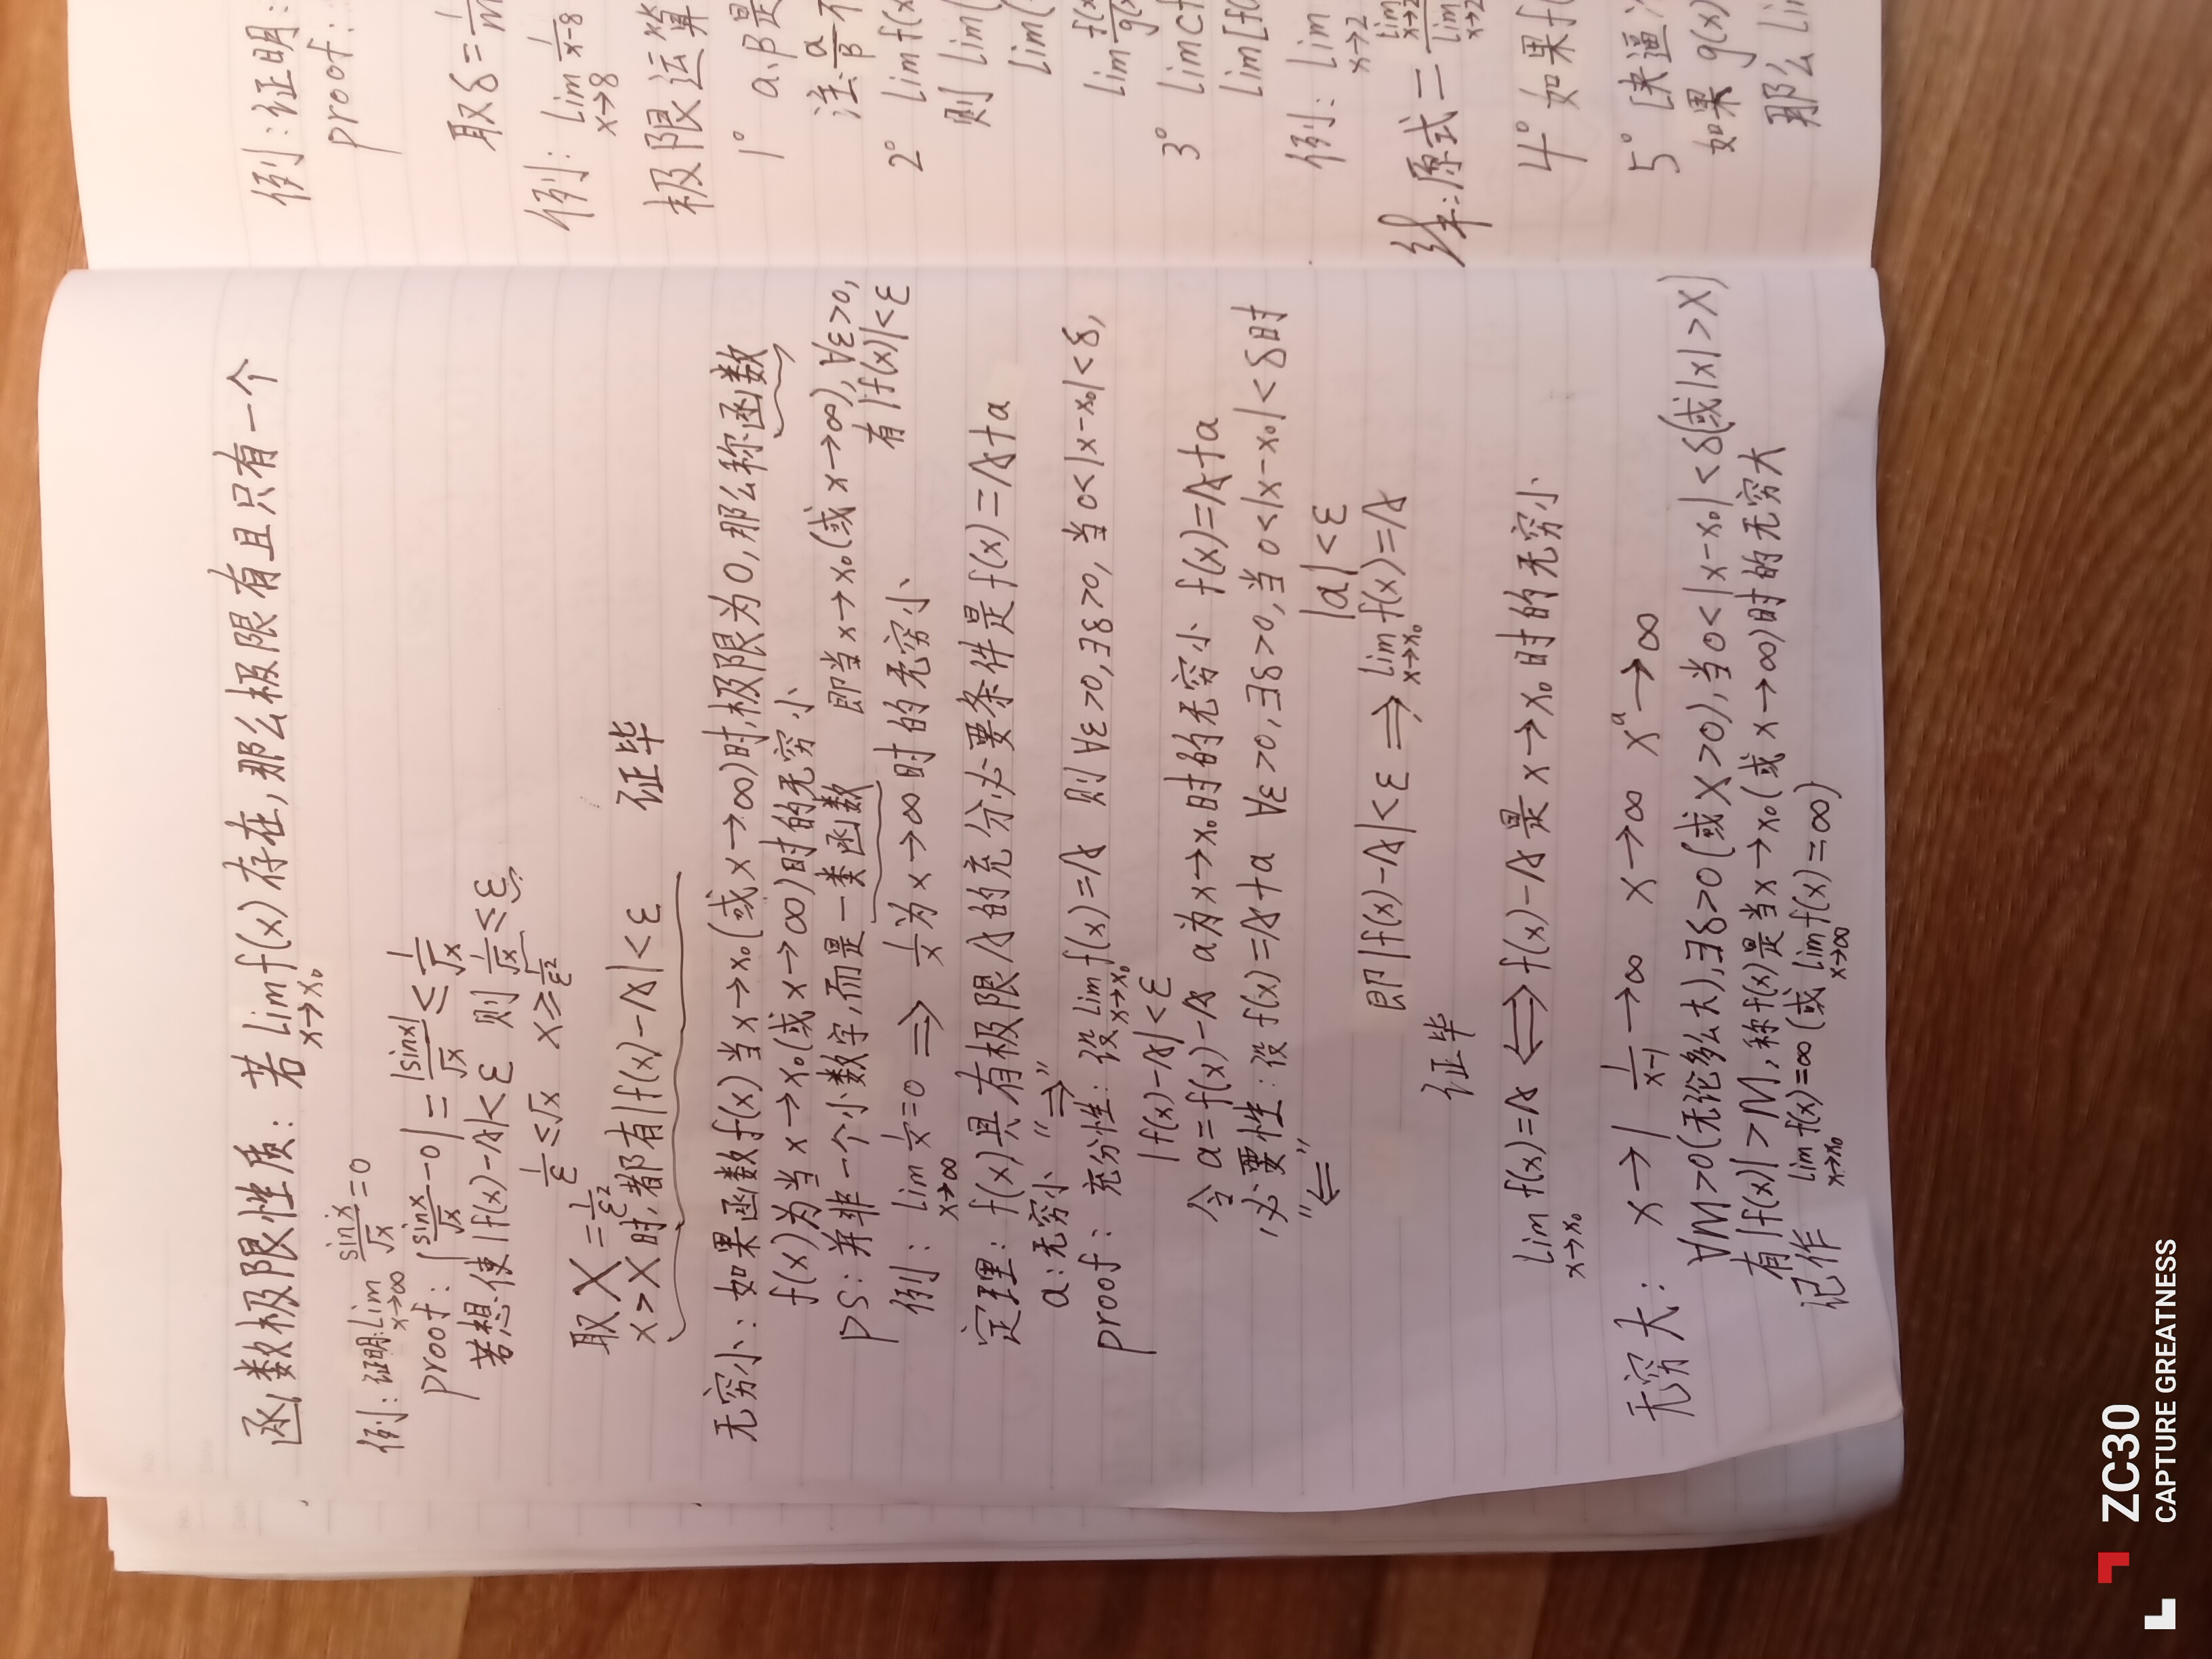 函数极限性质：若 lim f(x) 存在，那么极限有且只有一个
x→x₀
例：证明：lim sinx/√x = 0
x→∞
proof：|sinx/√x - 0| = |sinx|/√x ≤ 1/√x
若想使|f(x)-A|<ε 则 1/√x ≤ ε
1/ε ≤ √x x ≥ 1/ε²
取X = 1/ε²
x>X 时，都有|f(x)-A|<ε 证毕
无穷小：如果函数f(x)当x→x₀(或x→∞)时，极限为0，那么称函数
f(x)为当x→x₀(或x→∞)时的无穷小
PS：并非一个小数字，而是一类函数 即当x→x₀(或x→∞)，∀ε>0，
有|f(x)|<ε
例：lim 1/x = 0 ⟹ 1/x 为x→∞时的无穷小
x→∞
定理：f(x)具有极限A的充分必要条件是f(x)=A+a
a：无穷小 "⇒"
proof：充分性：设 lim f(x)=A 则∀ε>0，∃δ>0，当0<|x-x₀|<δ，
x→x₀
|f(x)-A|<ε
令a=f(x)-A a为x→x₀时的无穷小 f(x)=A+a
必要性：设f(x)=A+a ∀ε>0，∃δ>0，当0<|x-x₀|<δ时
"⇐" |a|<ε
即|f(x)-A|<ε ⟹ lim f(x)=A
x→x₀
证毕
lim f(x)=A ⟺ f(x)-A是x→x₀时的无穷小
x→x₀
无穷大：x→1 1/(x-1)→∞ x→∞ xᵃ→∞
∀M>0(无论多么大)，∃δ>0(或X>0)，当0<|x-x₀|<δ(或|x|>X)
有|f(x)|>M，称f(x)是当x→x₀(或x→∞)时的无穷大
记作 lim f(x)=∞ (或 lim f(x)=∞)
x→x₀ x→∞
例：证明：
proof：
取δ=1/m
例：lim 1/(x-8)
x→8
极限运算
1° a、β是
注：a/β不
2° lim f(x
则 lim(
lim(
lim f(x/g(x
3° lim cf
lim[f(
例：lim
x→2
解：原式= lim/lim
x→2
4° 如果f(
5° [夹逼
如果 g(x)
那么 lim
ZC30
CAPTURE GREATNESS